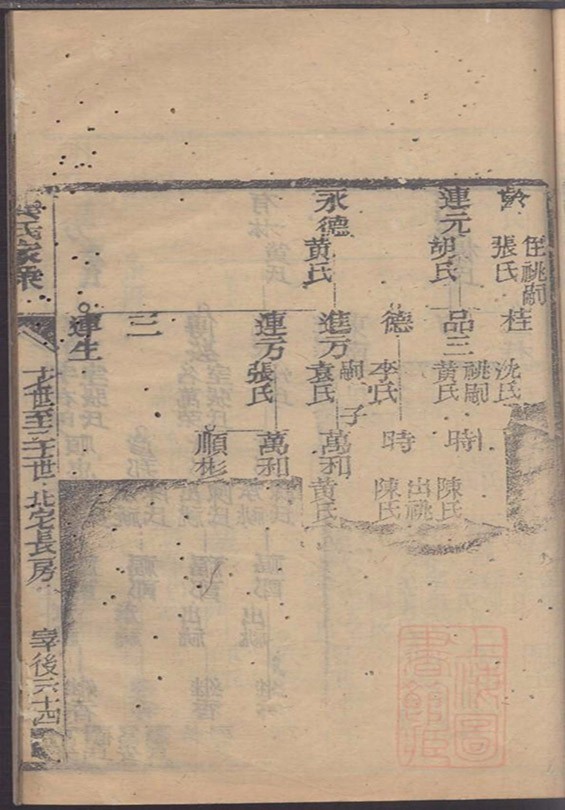 齡 張氏
侄祧嗣
桂 沈氏
連元 胡氏
品三 黃氏
祧嗣
時 陳氏
出祧
德 李氏
時 陳氏
永德 黃氏
進万 袁氏
嗣子
萬和 黃氏
連万 張氏
萬和
順彬
三
連生
氏家乘
世至 世 北宅長房
宰後六十四
上海圖
書館臧